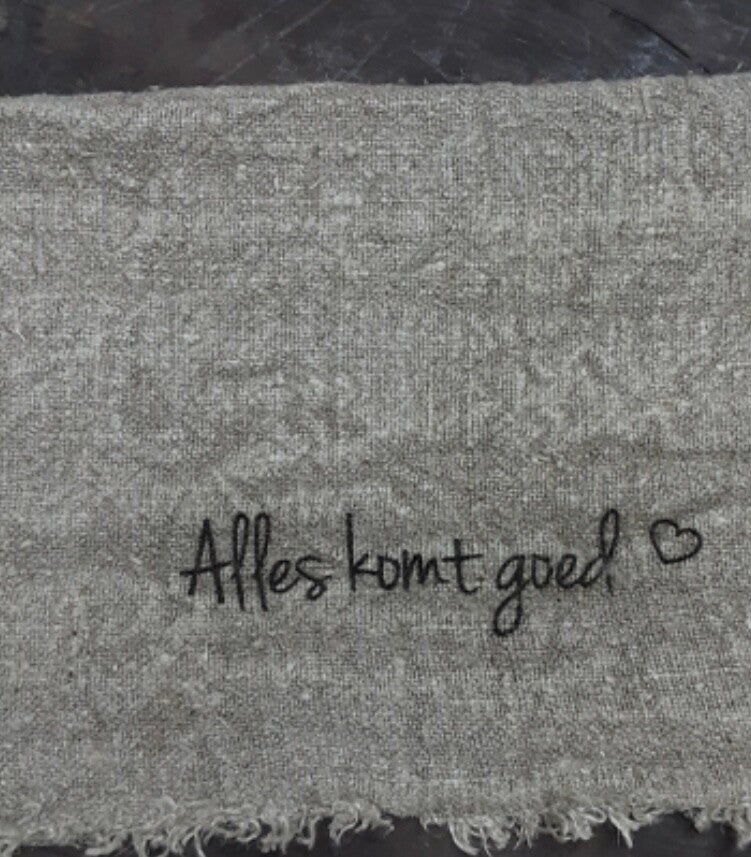 Alles komt goed ♡